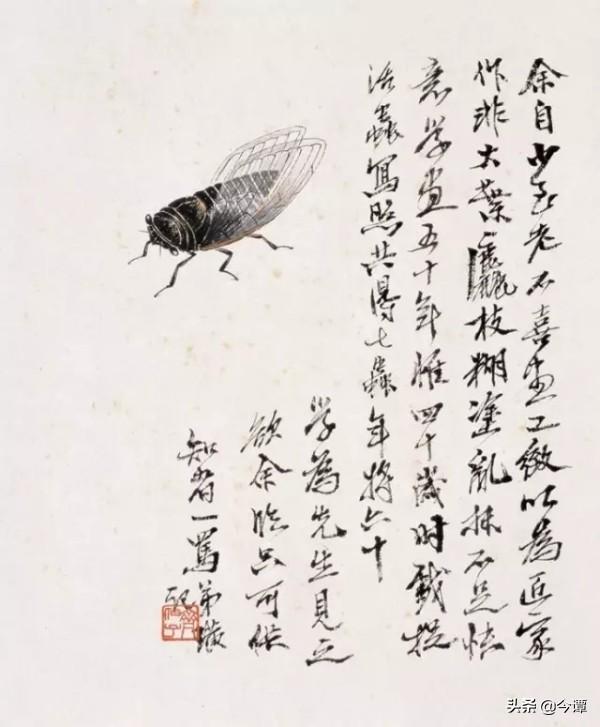 余自少至老不喜画工致以为匠家
作非大叶粗枝糊涂乱抹不足快
意学画五十年惟四十岁时戏捉
活虫写照共得七虫年将六十
学为先生见之
欲余临只可供
知者一骂弟璜
记
头条 @今谭